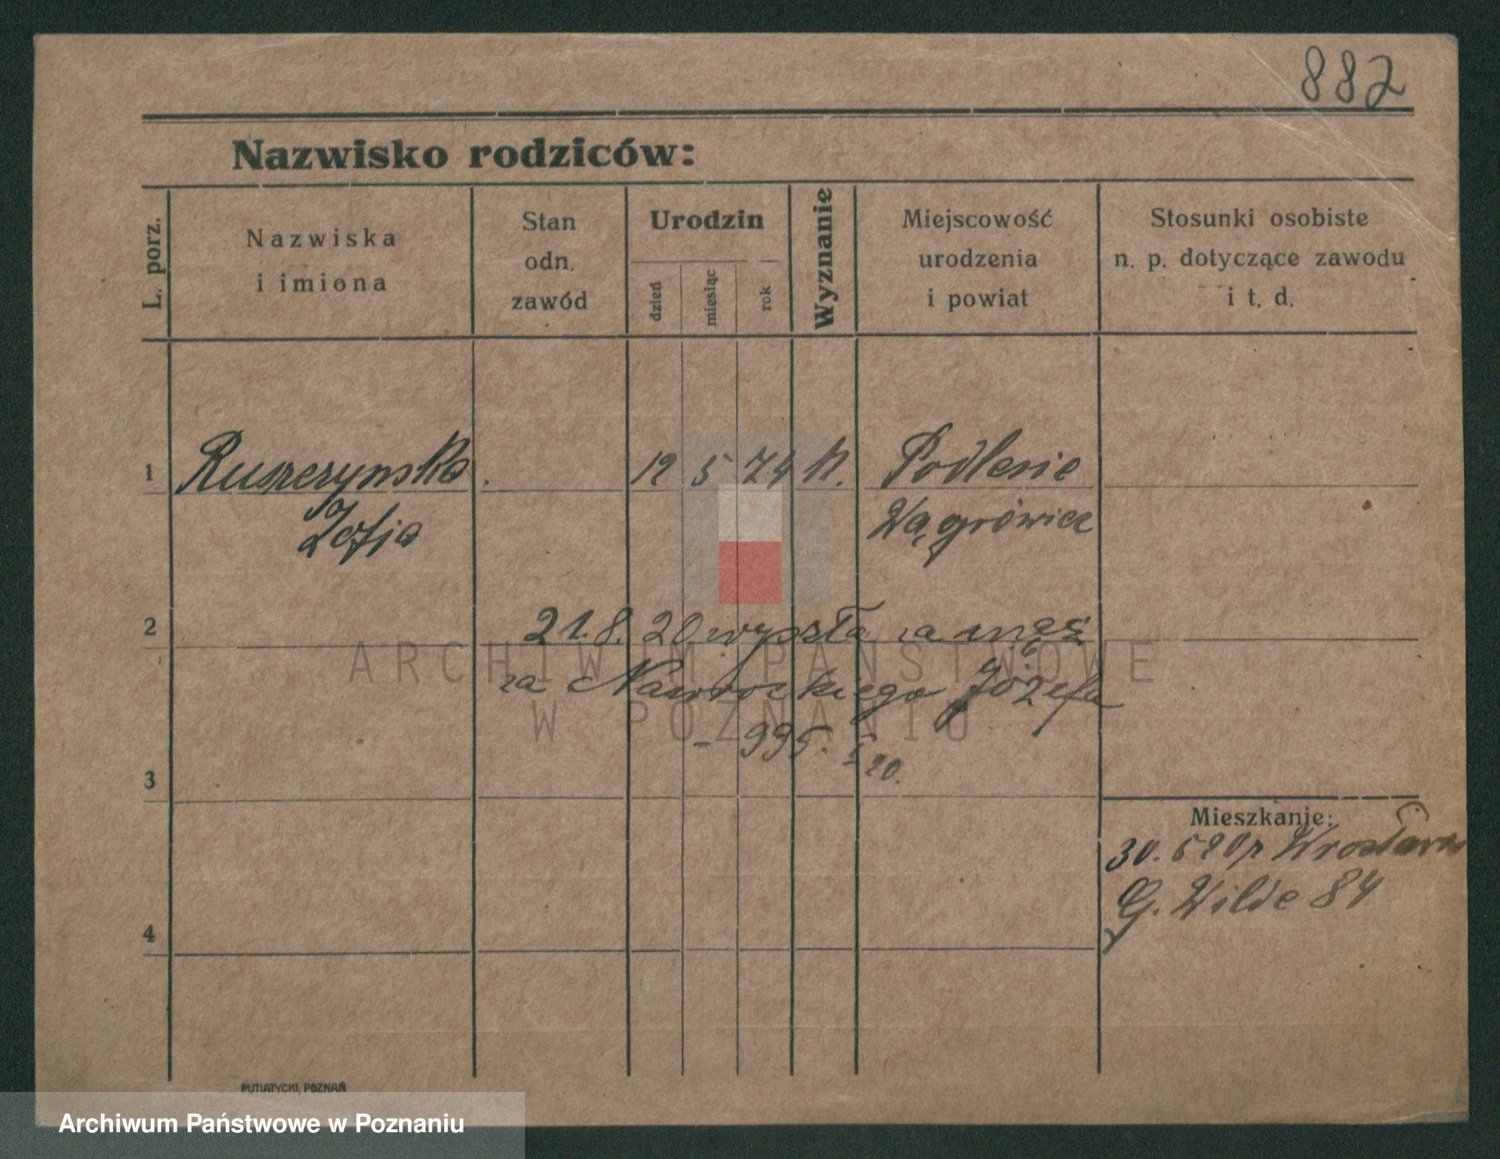 882
Nazwisko rodziców:
L. porz.
Nazwiska
i imiona
Stan
odn.
zawód
Urodzin
dzień
miesiąc
rok
Wyznanie
Miejscowość
urodzenia
i powiat
Stosunki osobiste
n. p. dotyczące zawodu
i t. d.
1
Ruszczynska
12 5 74 k. Podlesie
Zofja
Wągrówiec
2
21. 8. 20 wyszła za mąż
za Nawrockiego Józefa
ARCHIWUM PAŃSTWOWE
W POZNANIU
- 995.
20.
3
Mieszkanie:
30. 5 20
G. Wilde 84
4
PUTIATYCKI, POZNAŃ
Archiwum Państwowe w Poznaniu